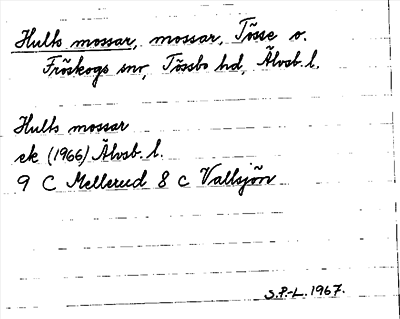 Hults mossar, mossar, Tösse o.
Fröskogs snr, Tössbo hd, Älvsb. l.
Hults mossar
ek (1966) Älvsb. l.
9 C Mellerud 8 c Vallsjön
S.P.-L. 1967.